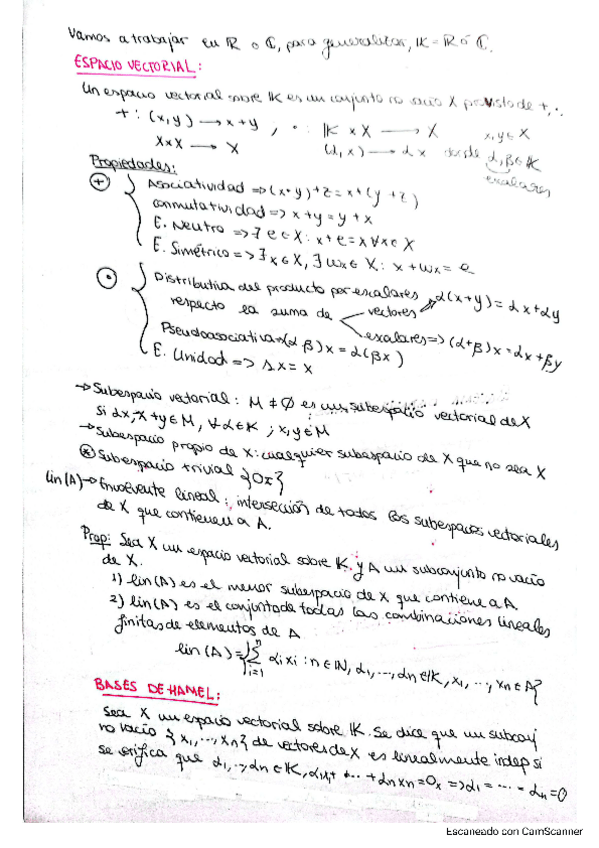 Vamos a trabajar en ℝ o ℂ, para generalizar, 𝕂 = ℝ ó ℂ.
ESPACIO VECTORIAL:
Un espacio vectorial sobre 𝕂 es un conjunto no vacío X provisto de +, ·
+ : (x,y) → x+y ; · : 𝕂 x X → X x,y ∈ X
X x X → X (α, x) → αx donde α, β ∈ 𝕂
escalares
Propiedades:
(+) { Asociatividad => (x+y)+z = x+(y+z)
conmutatividad => x+y = y+x
E. Neutro => ∃ e ∈ X : x+e = x ∀x ∈ X
E. Simétrico => ∃ x ∈ X, ∃ wx ∈ X : x + wx = e
(·) { Distributiva del producto por escalares
respecto la suma de < vectores => α(x+y) = αx + αy
escalares => (α+β)x = αx + βy
Pseudoasociativa => (αβ)x = α(βx)
E. Unidad => 1x = x
→ Subespacio vectorial: M ≠ ∅ es un subespacio vectorial de X
si αx, x+y ∈ M, ∀α ∈ K ; x,y ∈ M
→ Subespacio propio de X: cualquier subespacio de X que no sea X
⊛ Subespacio trivial {0x}
lin(A) → Envolvente lineal: intersección de todos los subespacios vectoriales
de X que contienen a A.
Prop: Sea X un espacio vectorial sobre 𝕂 y A un subconjunto no vacío
de X.
1) lin(A) es el menor subespacio de X que contiene a A.
2) lin(A) es el conjunto de todas las combinaciones lineales
finitas de elementos de A
lin(A) = {∑ⁿᵢ₌₁ αi xi : n ∈ ℕ, α1, ..., αn ∈ 𝕂, x1, ..., xn ∈ A}
BASES DE HAMEL:
Sea X un espacio vectorial sobre 𝕂. Se dice que un subconj
no vacío {x1, ..., xn} de vectores de X es linealmente indep si
se verifica que α1, ..., αn ∈ 𝕂, α1x1 + ... + αnxn = 0x => α1 = ... = αn = 0
Escaneado con CamScanner